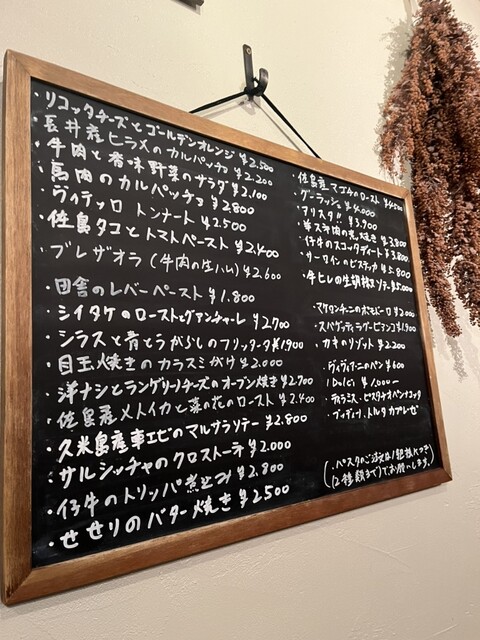 ・リコッタチーズとゴールデンオレンジ ¥2,500
・長井産ヒラメのカルパッチョ ¥2,200
・牛肉と香味野菜のサラダ ¥2,100
・馬肉のカルパッチョ ¥2800
・ヴィテッロ トンナート ¥2500
・佐島タコとトマトペースト ¥2,400
・ブレザオラ (牛肉の生ハム) ¥2,600
・田舎のレバーペースト ¥1,800
・シイタケのローストとグァンチャーレ ¥2,700
・シラスと青とうがらしのフリッタータ ¥1,900
・目玉焼きのカラスミがけ ¥2,000
・洋ナシとラングリーノチーズのオーブン焼き ¥2,700
・佐島産メトイカと菜の花のロースト ¥2,400
・久米島産車エビのマルサラソテー ¥2,800
・サルシッチャのクロストーテ ¥2,000
・仔牛のトリッパ煮込み ¥2,800
・せせりのバター焼き ¥2500
・佐島産 マゴチのロースト ¥4500
・グーラッシュ ¥4,000
・アリスタ!! ¥3,900
¥3,800
・仔牛のスコッタディート ¥3,800
・サーロインのビステッカ ¥5,800
・牛ヒレの生胡椒ソテー ¥5,000
・マケロンチーニのポモドーロ ¥2,000
・スパゲッティラグービアンコ ¥1,900
・カキのリゾット ¥2,200
・ヴィヴィアーニのパン ¥600
・Dolci ¥1,000ー
・ティラミス・ピスタチオパンナコッタ
・ブディーノ・トルタカプレーゼ
(・パスタのご注文は1組様につき
(2種類まで)でお願いします。)